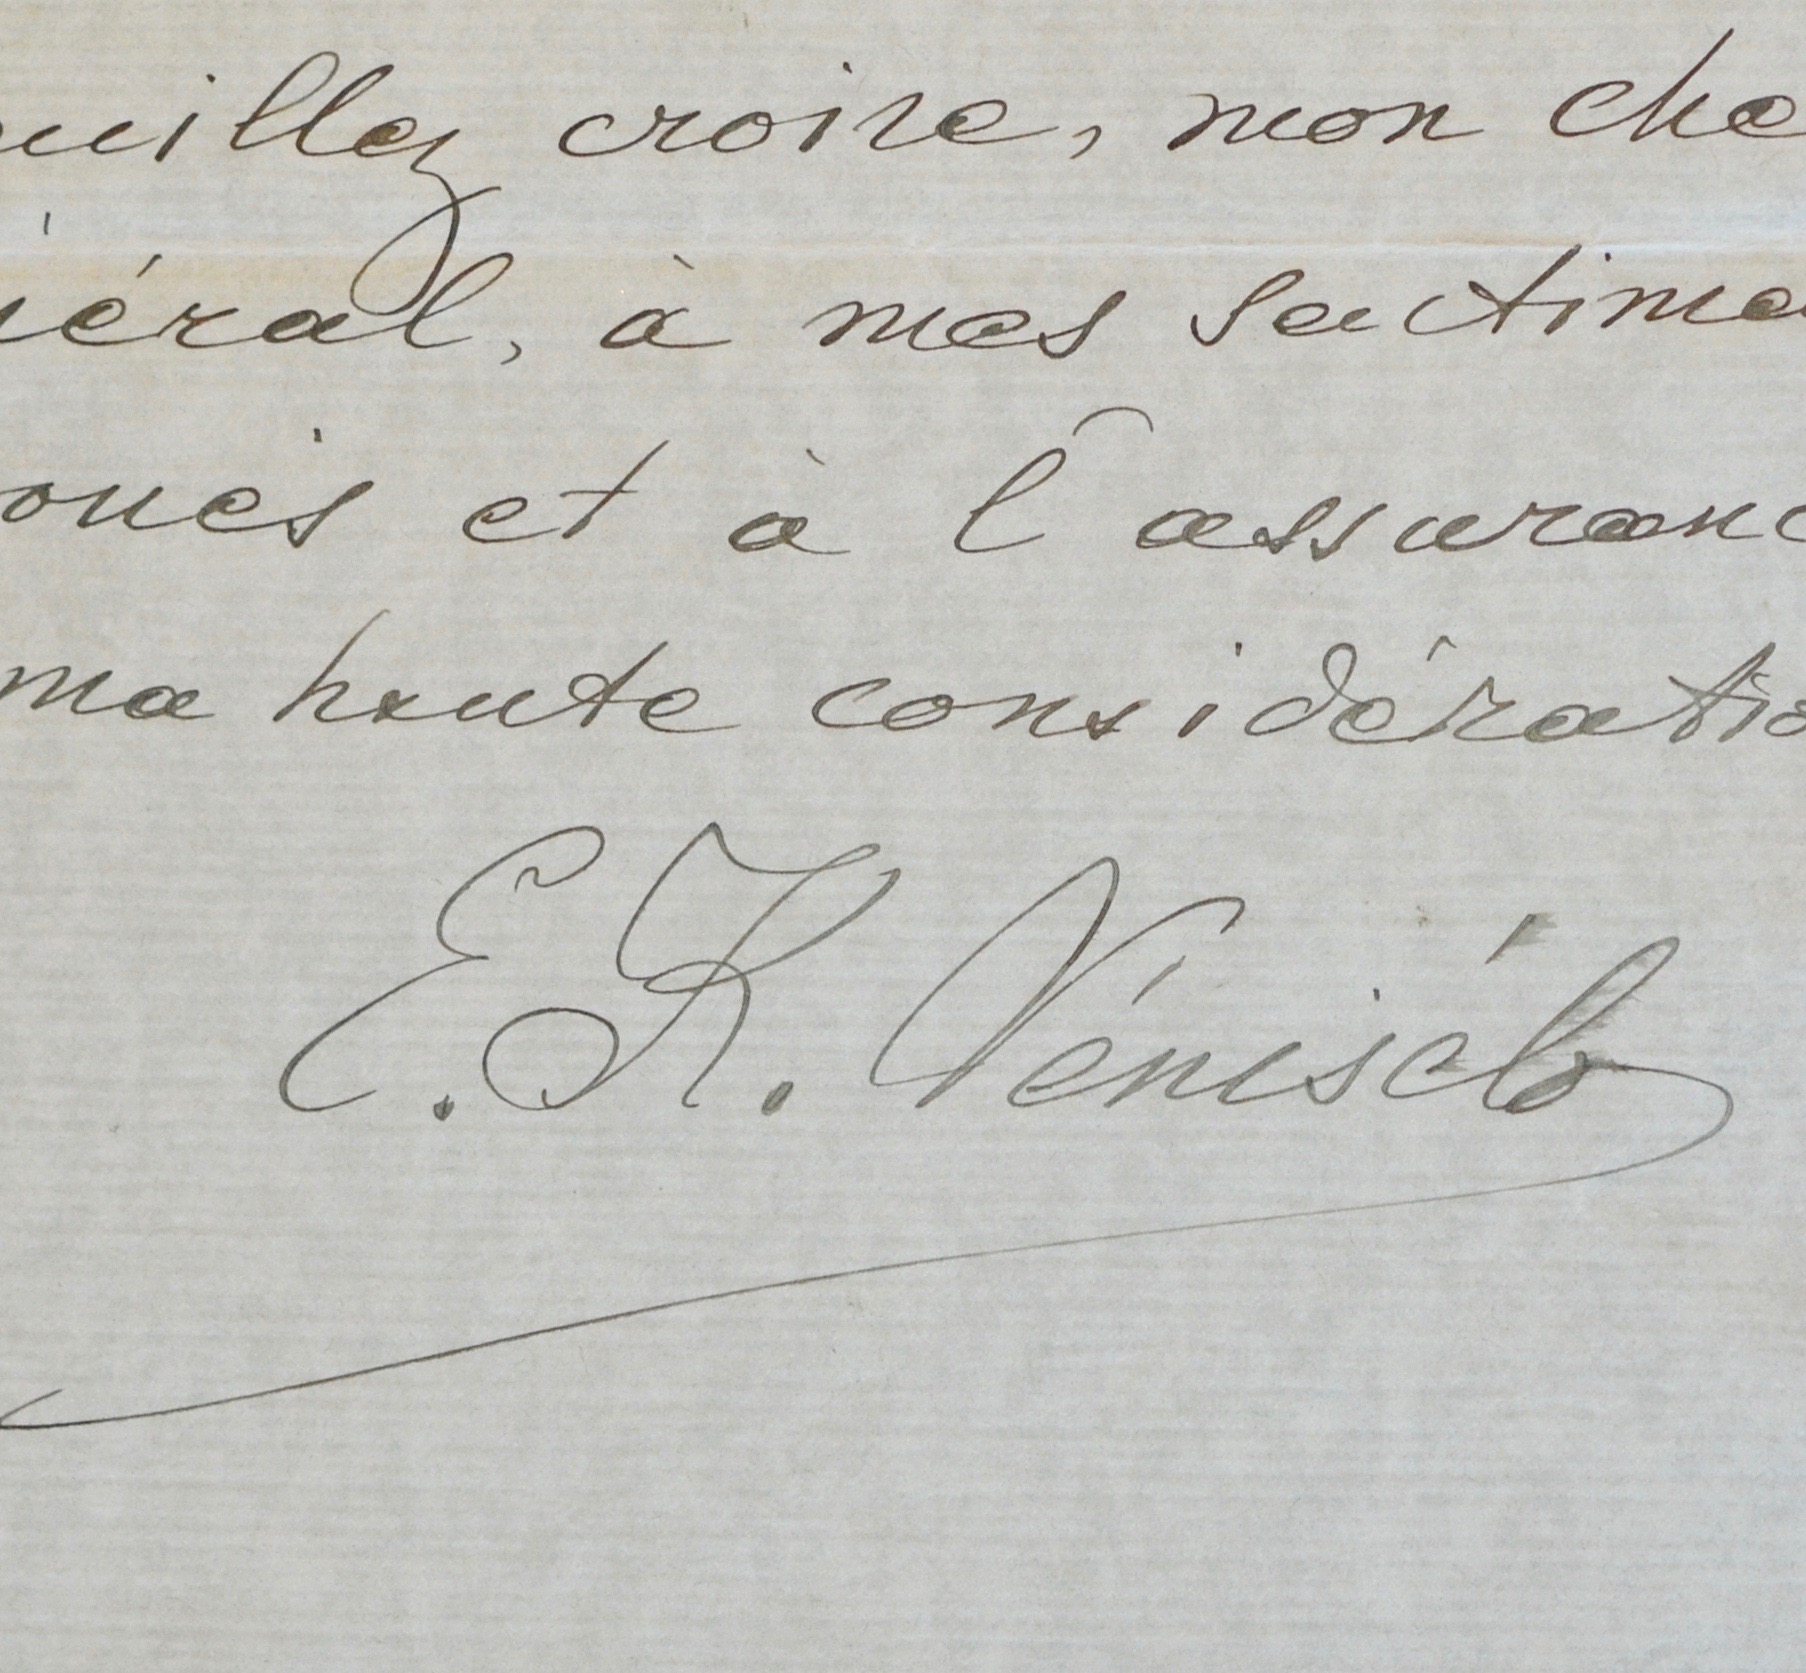 euillez croire, mon che
néral, à mes sentime
oués et à l'assuranc
ma haute considératio
E. K. Vénisélo